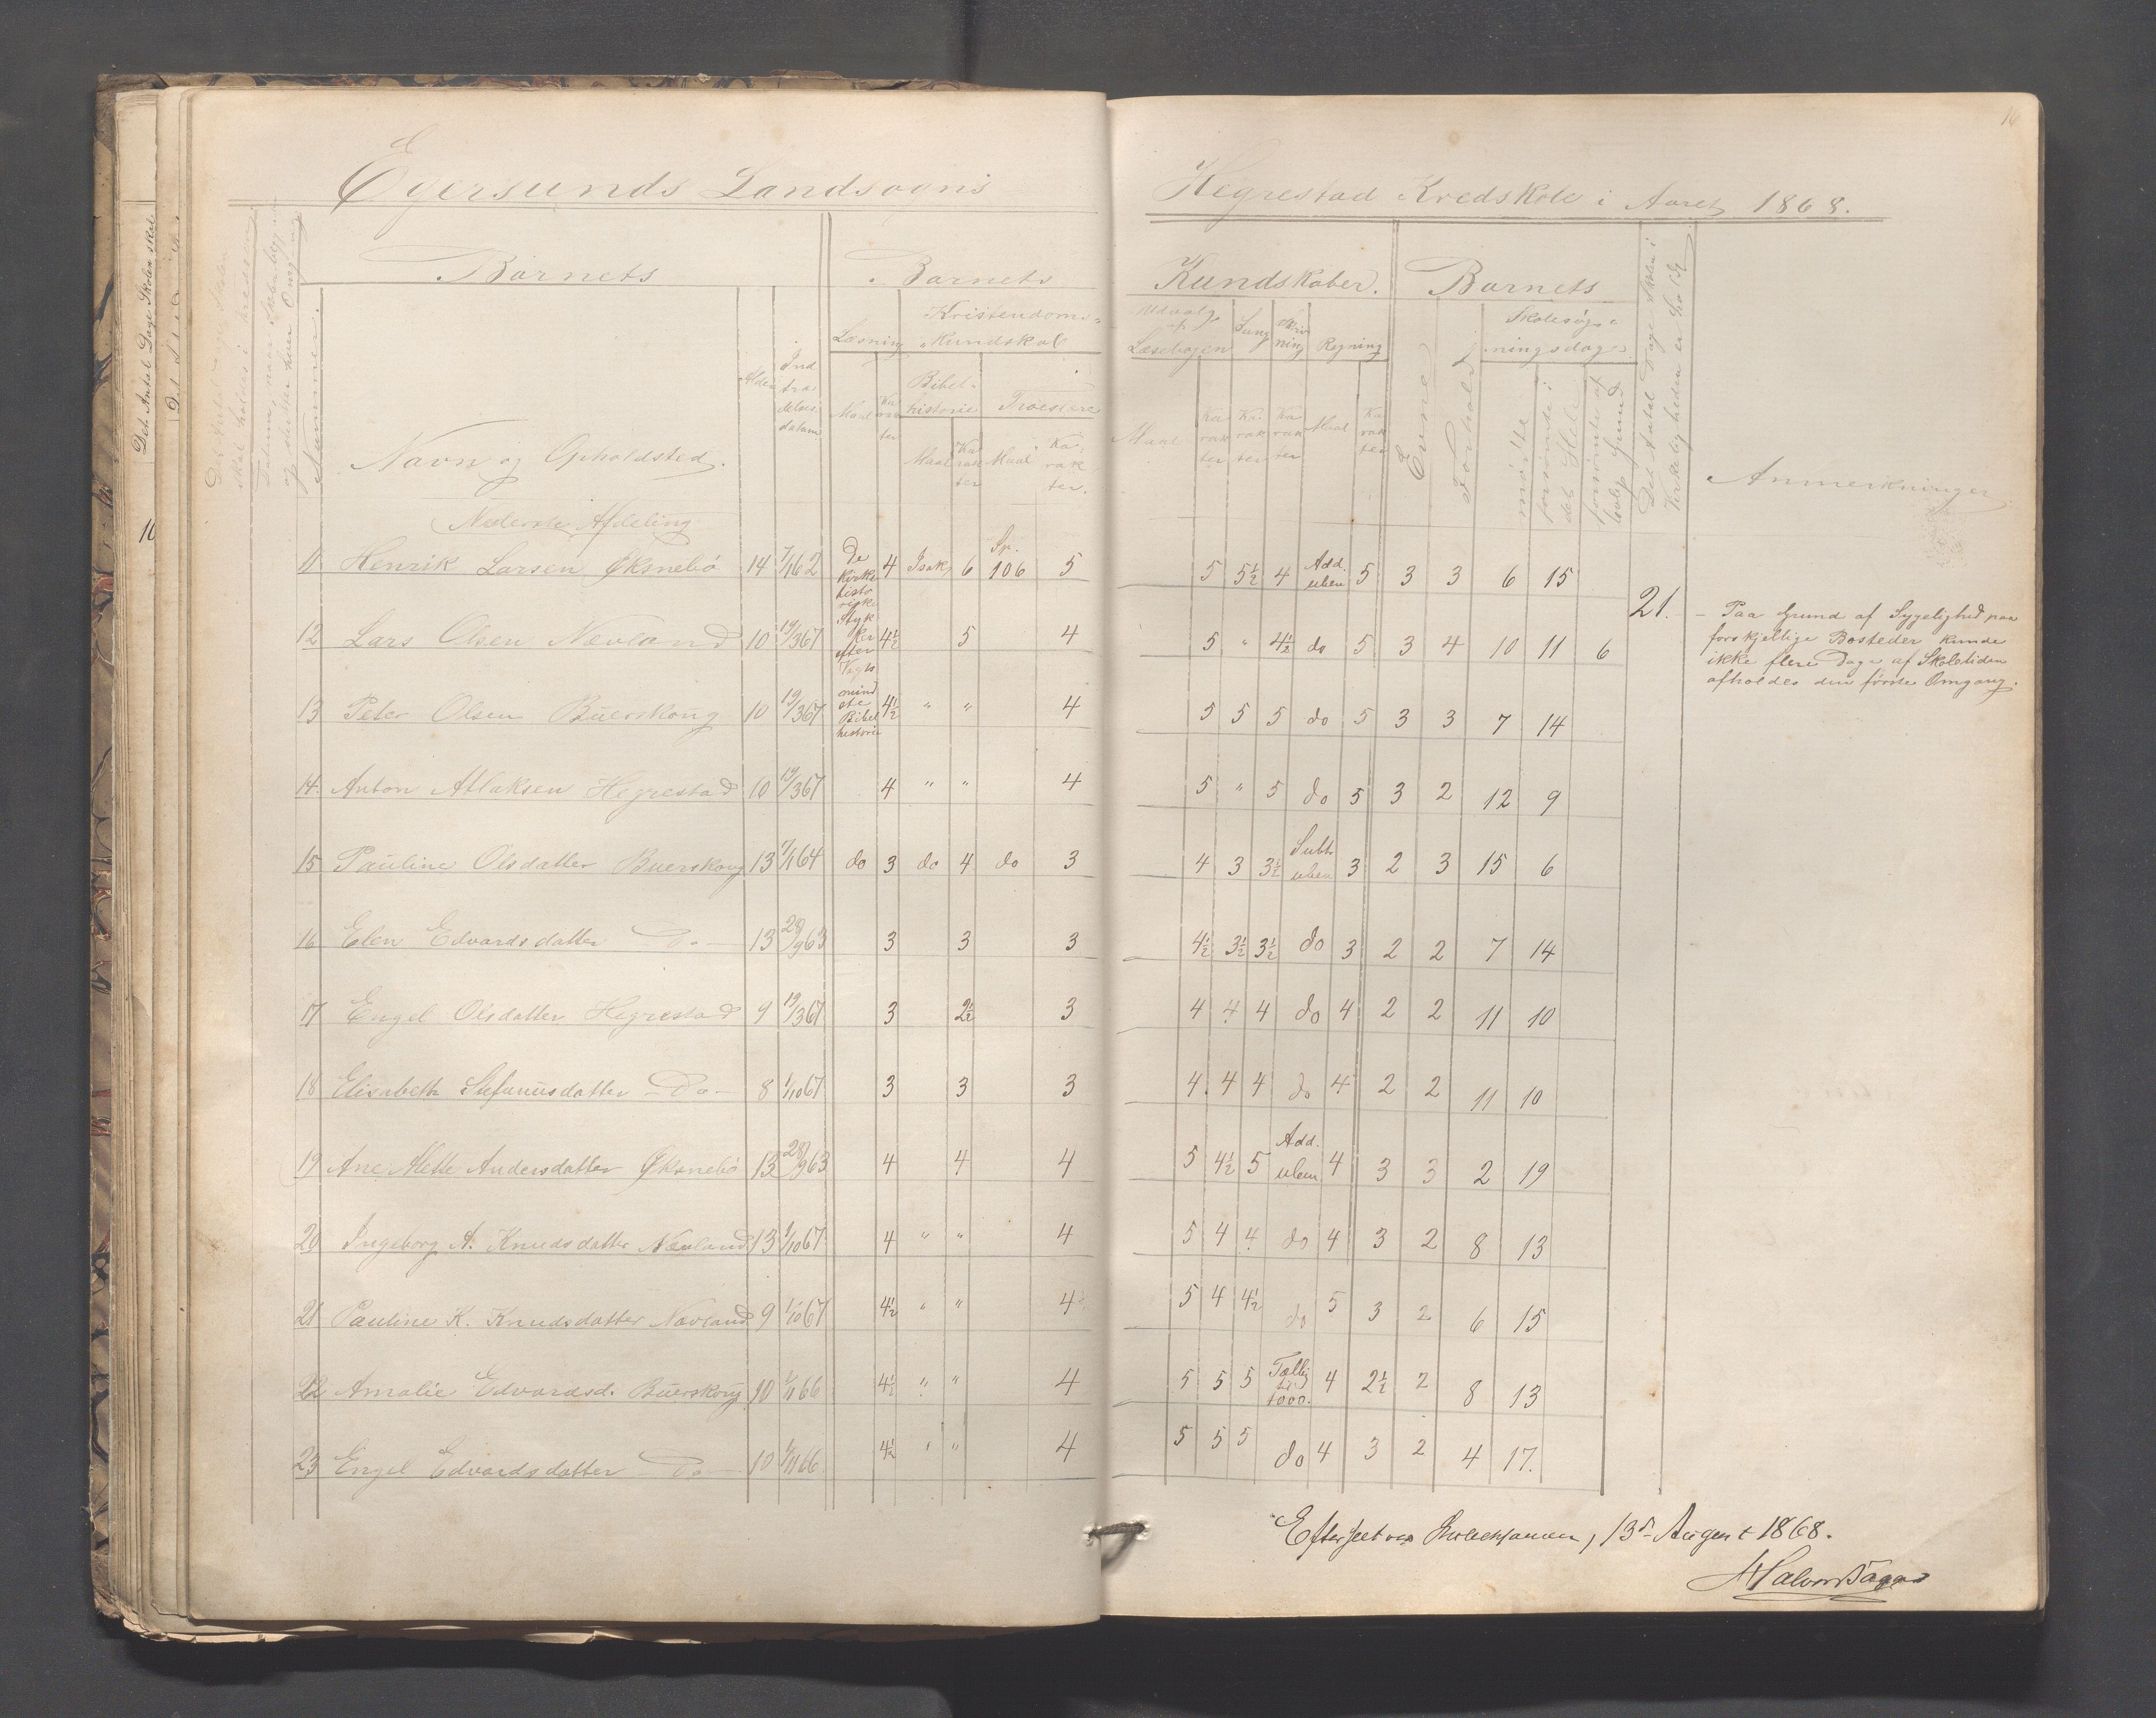 Egersunds Landsogns
Hegrestad Kredskole i Aaret 1868.
16
Det Antal Dage Skolen skal
Det Antal Dage Skolen
skal holdes i Kredsen
Nummer.
Barnets
Navn og Opholdsted.
Alder
Ind
træ
delses
datum
Barnets
Læsning
Maal
Ka
rak
ter
Kristendoms-
kundskab
Bibel-
historie
Troeslære
Maal
Ka
rak
ter
Maal
Ka
rak
ter.
Kundskaber.
Udvalg
af
Læsebogen
Sang
Skriv
ning
Regning
Maal
Ka
rak
ter
Ka
rak
ter
Ka
rak
ter
Maal
Ka
rak
ter
Barnets
Evne
Forhold
Skolesøg-
ningsdage
mødte
forsømte i
det Hele
forsømte af
lovlig Grund
Det Antal Dage Skolen i
Virkeligheden er holdt
Anmerkninger
Nederste Afdeling
11 Henrik Larsen Øksnebö 14 7/1 62 De kirke histo riske Styk ker efter Vogts mind ste Bibel historie 4 Isak 6 Sp. 106 5 5 5½ 4 Add. uben 5 3 3 6 15
21.
12 Lars Olsen Nævland 10 19/3 67 4½ 5 4 5 " 4½ do 5 3 4 10 11 6
– Paa Grund af Sygelighed paa
forskjellige Bosteder kunde
ikke flere Dage af Skoletiden
afholdes den første Omgang.
13 Peter Olsen Buerskoug 10 19/3 67 4½ " " 4 5 5 5 do 5 3 3 7 14
14 Anton Atlaksen Hegrestad 10 19/3 67 4 " " 4 5 " 5 do 5 3 2 12 9
15 Pauline Olsdatter Buerskoug 13 7/1 64 do 3 do 4 do 3 4 3 3½ Subtr uben 3 2 3 15 6
16 Elen Edvardsdatter – Do – 13 28/9 63 3 3 3 4½ 3½ 3½ do 3 2 2 7 14
17 Engel Olsdatter Hegrestad 9 19/3 67 3 2½ 3 4 4 4 do 4 2 2 11 10
18 Elisabeth Stefanusdatter – Do – 8 1/10 67 3 3 3 4 4 4 do 4 2 2 11 10
19 Ane Mette Andersdatter Øksnebö 13 28/9 63 4 4 4 5 4½ 5 Add. uben 4 3 3 2 19
20 Ingeborg A. Knudsdatter Nævland 13 1/10 67 4 " " 4 5 4 4 do 4 3 2 8 13
21 Pauline K. Knudsdatter Nævland 9 1/10 67 4½ " " 4 5 4 4½ do 5 3 2 6 15
22 Amalie Edvardsd. Buerskoug 10 1/11 66 4½ " " 4 5 5 5 Tællg til 1000. 4 2½ 2 8 13
23 Engel Edvardsdatter – Do – 10 1/11 66 4½ " " 4 5 5 5 do 4 3 2 4 17.
Efterseet ved 13de August 1868.